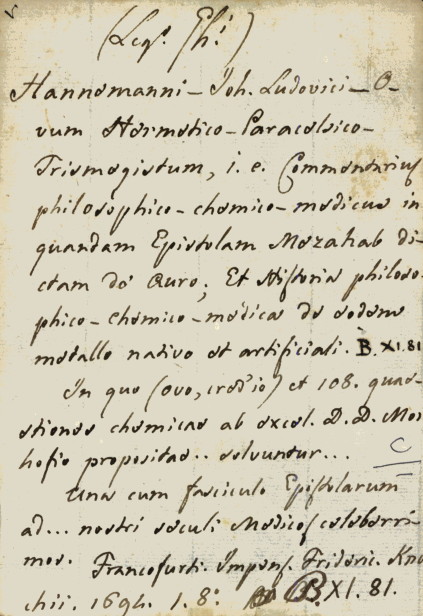 (Legs. Chi.)
Hannemanni - Joh. Ludovici - O-
vum Hermetico - Paracelsico -
Trismegistum, i. e. Commentarius
philosophico - chemico - medicus in
quandam Epistolam Mezahab di-
ctam de Auro; Et Historia philoso-
phico - Chemico - medica de eodem
metallo nativo et artificiali. B. XI. 81
In quo (ovo, credo io) et 108. quae-
stiones chemicae ab excel. D. D. Mor
hofio propositae .. solvuntur...
C
Una cum fasciculo Epistolarum
ad... nostri saeculi Medicos celeberri-
mos. Francofurti. Impens. Frideric. Kno
chii. 1694. 1. 8°. B XI. 81.